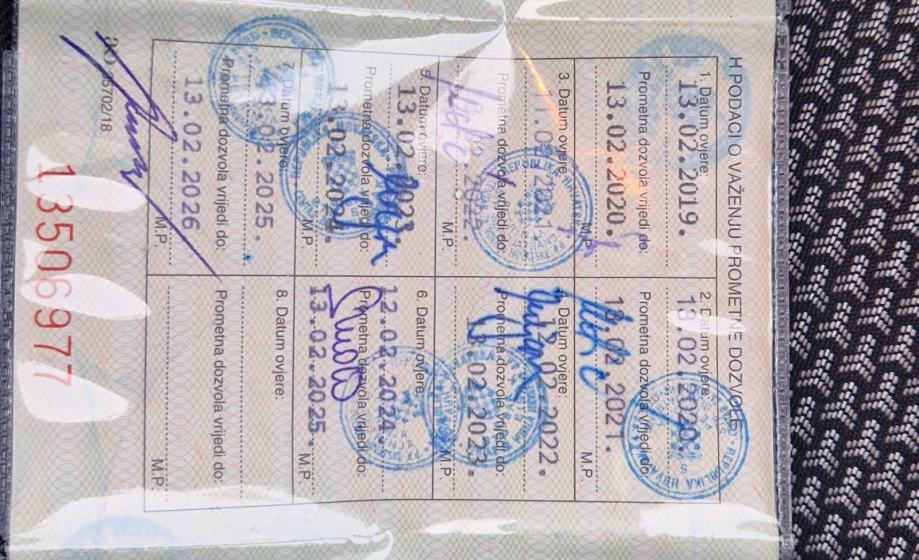 H PODACI O VAŽENJU PROMETNE DOZVOLE
1. Datum ovjere:
13.02.2019.
Prometna dozvola vrijedi do:
13.02.2020.
M.P.
2. Datum ovjere:
13.02.2020.
Prometna dozvola vrijedi do:
13.02.2021.
M.P.
3. Datum ovjere:
11.02.2021.
Prometna dozvola vrijedi do:
M.P.
4. Datum ovjere:
12.02.2022.
Prometna dozvola vrijedi do:
13.02.2023.
M.P.
5. Datum ovjere:
13.02.2023.
Prometna dozvola vrijedi do:
13.02.2024.
M.P.
6. Datum ovjere:
12.02.2024.
Prometna dozvola vrijedi do:
13.02.2025.
M.P.
7. Datum ovjere:
13.02.2025.
Prometna dozvola vrijedi do:
13.02.2026
M.P.
8. Datum ovjere:
Prometna dozvola vrijedi do:
M.P.
13506977